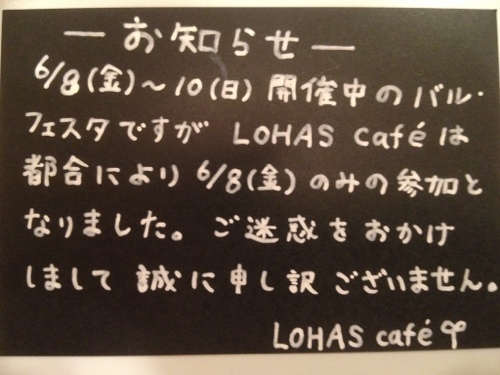 ーお知らせー
6/8(金)～10(日)開催中のバル・
フェスタですが LOHAS caféは
都合により6/8(金)のみの参加と
なりました。ご迷惑をおかけ
しまして誠に申し訳ございません。
LOHAS café